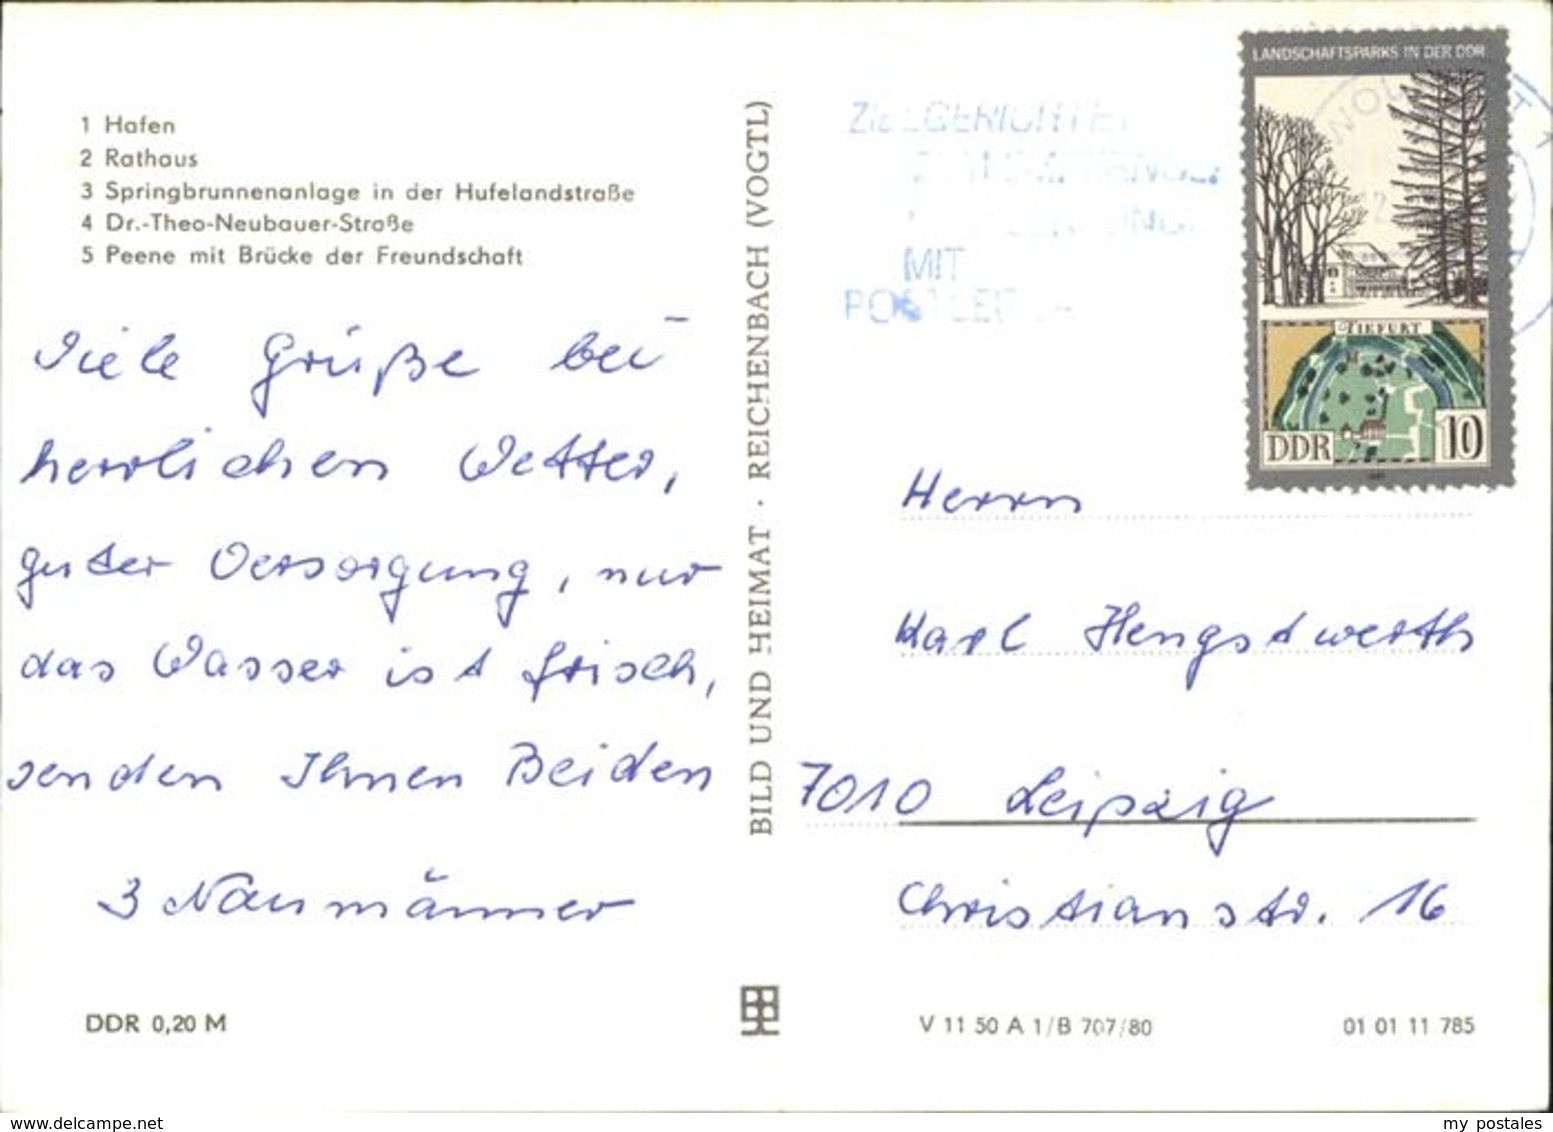 1 Hafen
2 Rathaus
3 Springbrunnenanlage in der Hufelandstraße
4 Dr.-Theo-Neubauer-Straße
5 Peene mit Brücke der Freundschaft
Viele Grüße bei
herrlichen Wetter,
guter Versorgung, nur
das Wasser ist frisch,
senden Ihnen Beiden
3 Naumänner
DDR 0,20 M
BILD UND HEIMAT · REICHENBACH (VOGTL)
ZIELGERICHTET
MIT
LANDSCHAFTSPARKS IN DER DDR
TIEFURT
DDR 10
Herrn
Karl Hengstwerth
7010 Leipzig
Christianstr. 16
V 11 50 A 1/B 707/80
01 01 11 785
www.delcampe.net
my postales